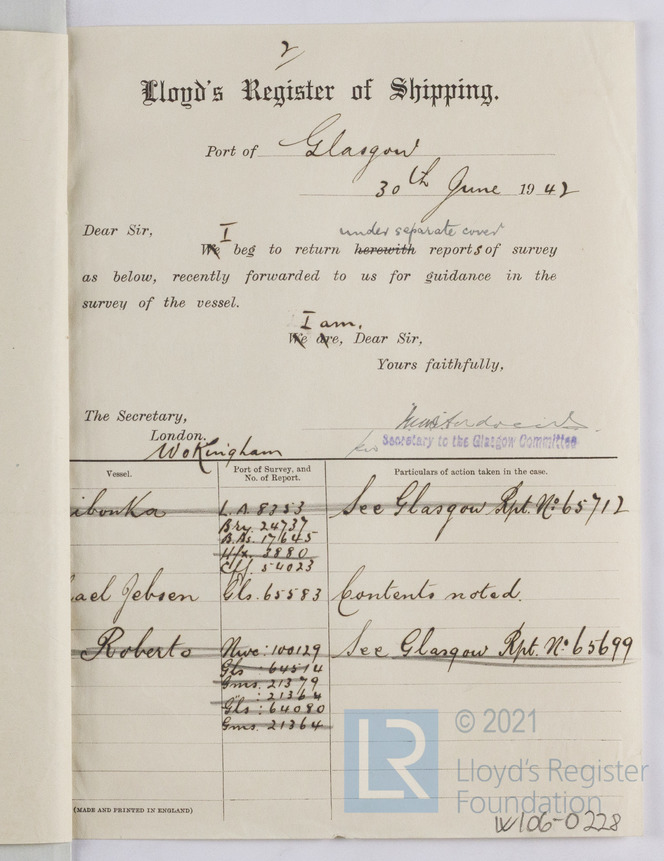 2
Lloyd's Register of Shipping.
Port of Glasgow
30th June 1942
Dear Sir,
I under separate cover
We beg to return herewith reports of survey
as below, recently forwarded to us for guidance in the
survey of the vessel.
I am,
We are, Dear Sir,
Yours faithfully,
The Secretary,
London.
for Secretary to the Glasgow Committee
Wokingham
Vessel. Port of Survey, and No. of Report. Particulars of action taken in the case.
ibonka L.A. 8353 See Glasgow Rpt. No. 65712
Bry. 24737
B.As. 17645
Hfx. 3880
Cff. 54023
ael Jebsen Gls. 65583 Contents noted.
Roberts Nwc: 100129 See Glasgow Rpt. No. 65699
Gls: 64514
Gms. 21379
" : 21364
Gls: 64080
Gms. 21364
(MADE AND PRINTED IN ENGLAND)
LR © 2021
Lloyd's Register
Foundation
W106-0228